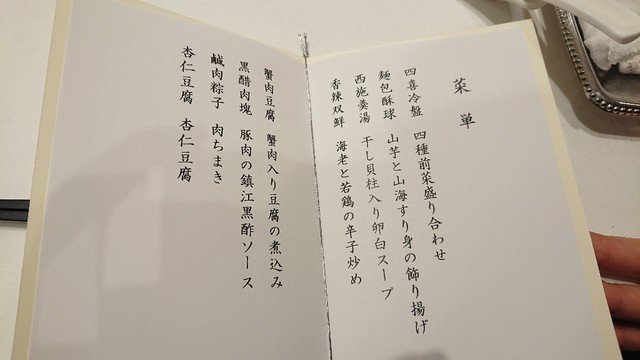 菜単
四喜冷盤 四種前菜盛り合わせ
麺包酥球 山芋と山海すり身の飾り揚げ
西施羹湯 干し貝柱入り卵白スープ
香辣双鮮 海老と若鶏の辛子炒め
蟹肉豆腐 蟹肉入り豆腐の煮込み
黒醋肉塊 豚肉の鎮江黒酢ソース
鹹肉粽子 肉ちまき
杏仁豆腐 杏仁豆腐